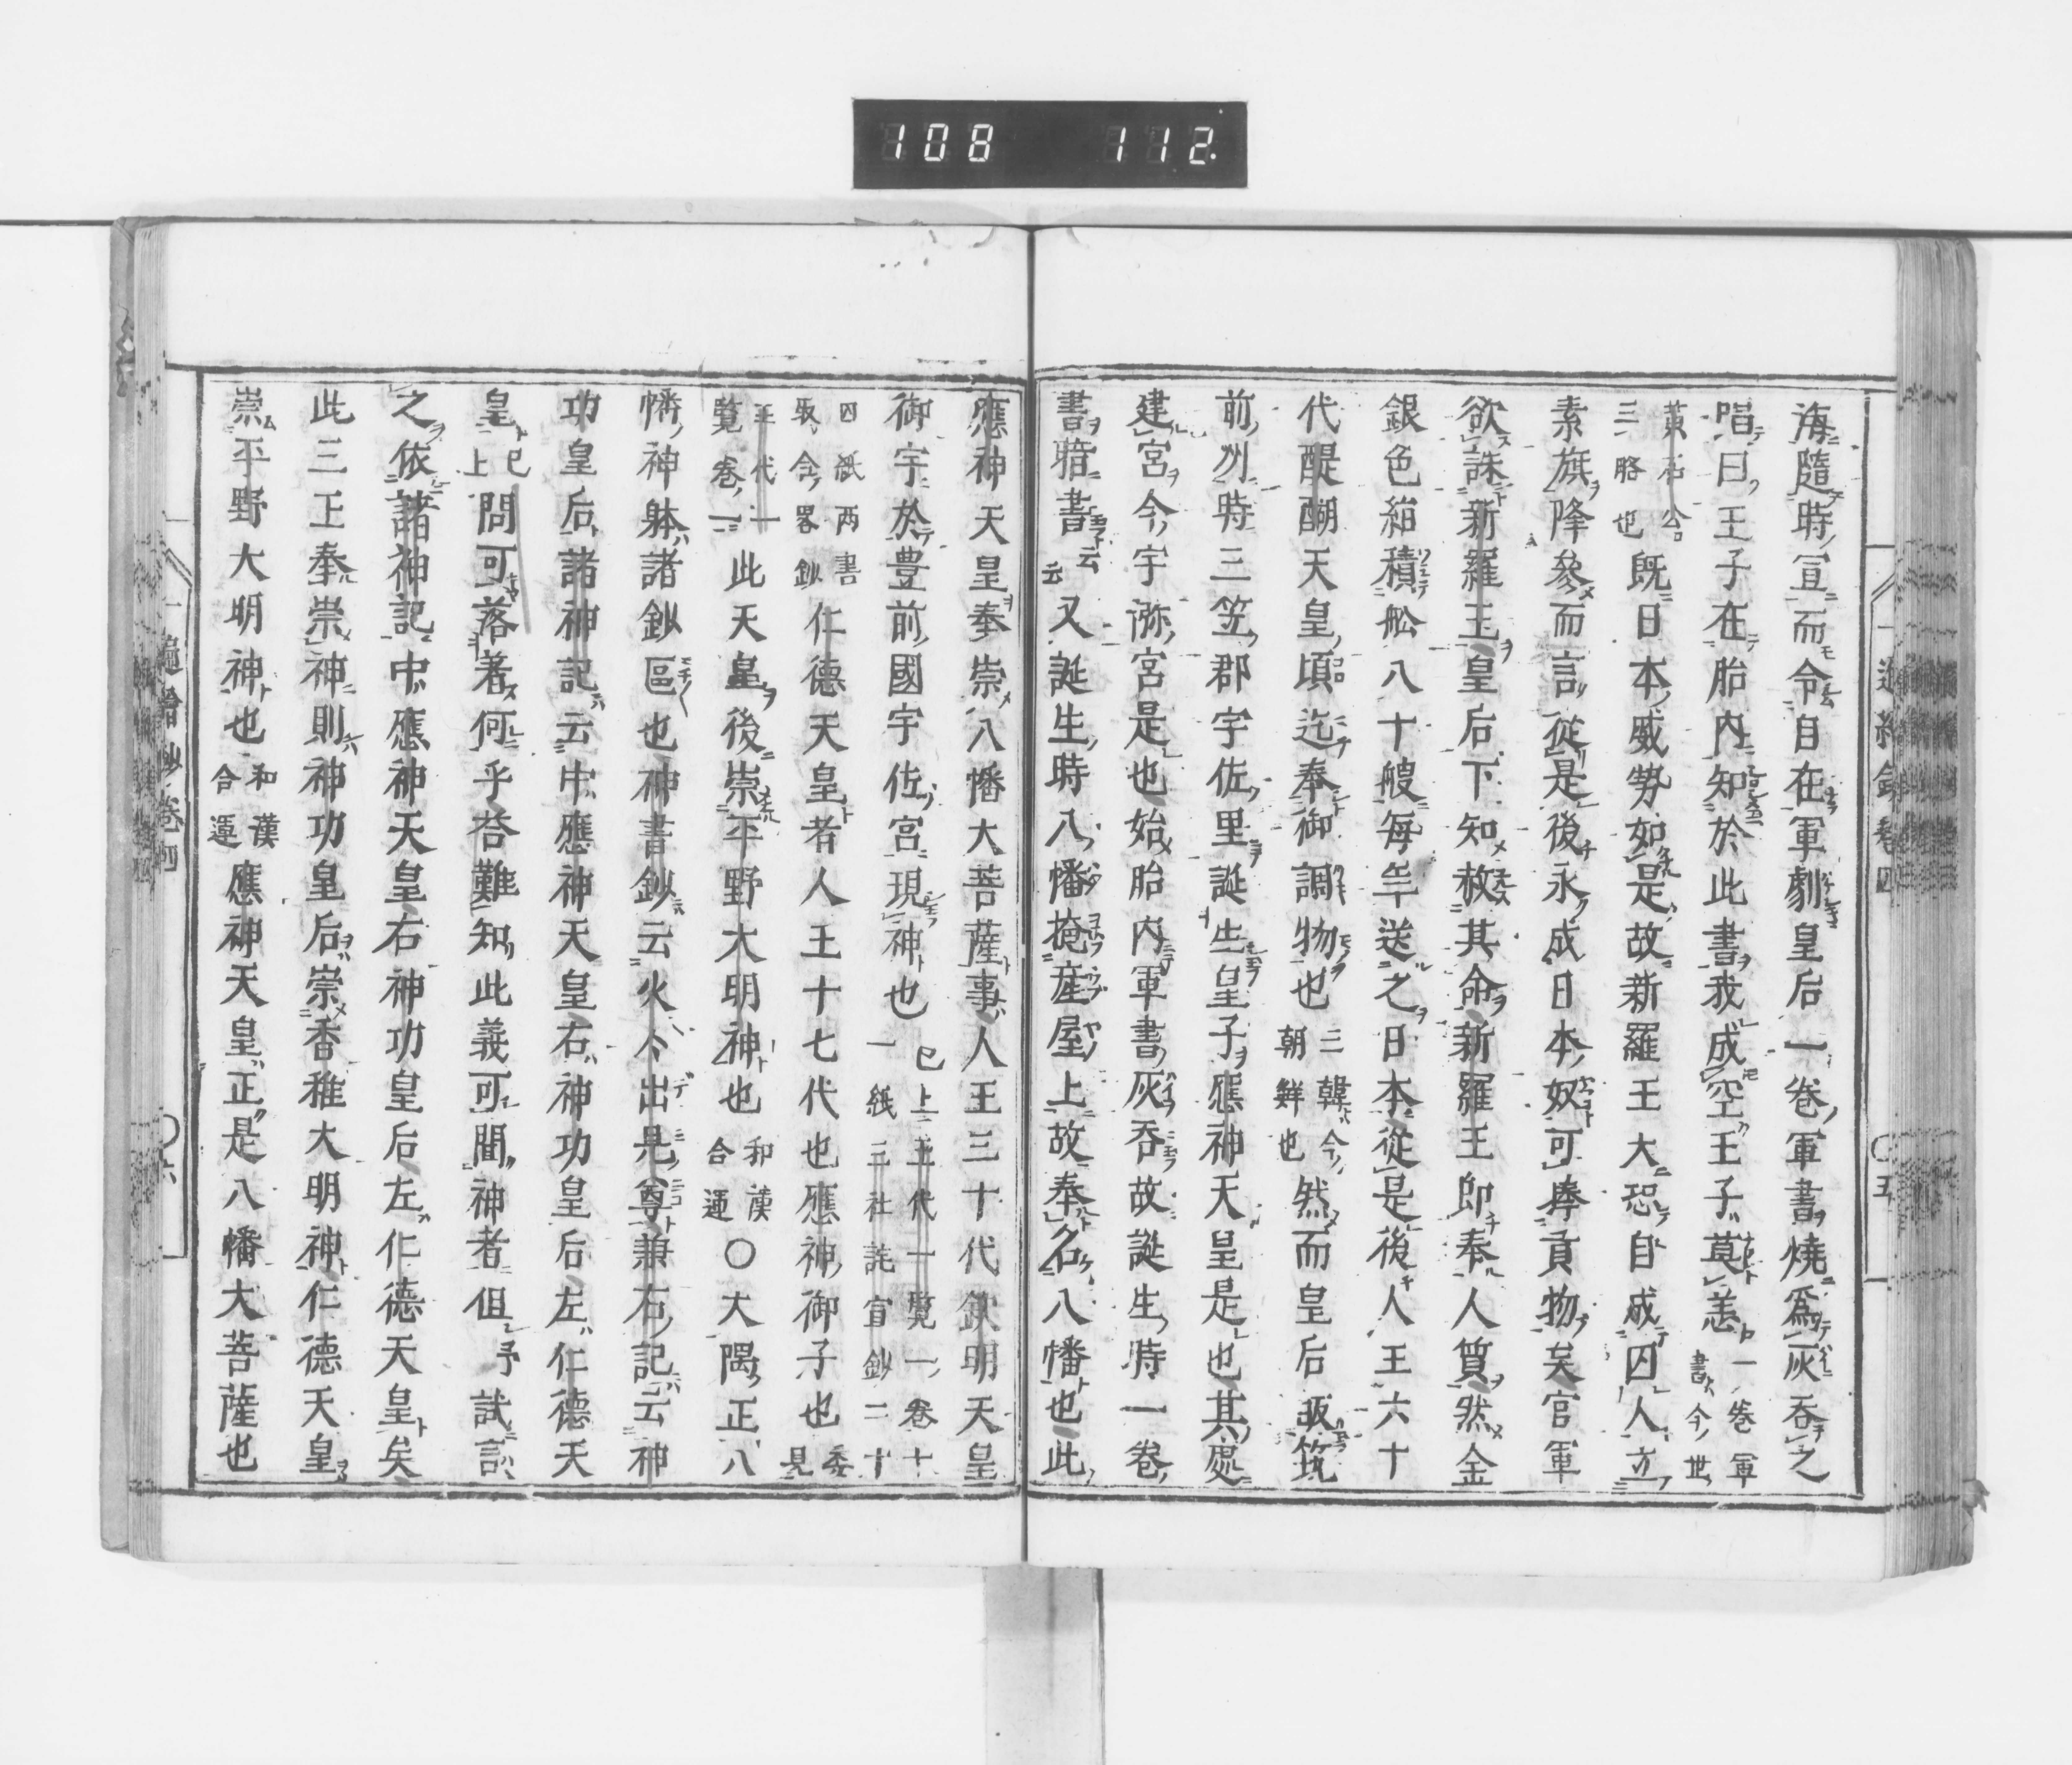 108 112
海隨時宣而令自在軍劇皇后一卷軍書燒爲灰吞之
唱曰王子在胎内知於此書我成空王子莫恙 一卷軍書今世
黃石公三略也 既日本威勢如是故新羅王大恐自成囚人立
素旗降參而言從是後永成日本奴可捧貢物矣官軍
欲誅新羅王皇后下知赦其命新羅王即奉人質然金
銀色絹積舩八十艘每年送之日本從是後人王六十
代醍醐天皇頃迄奉御調物也 三韓今朝鮮也 然而皇后皈筑
前州時三笠郡宇佐里誕生皇子應神天皇是也其處
建宮今宇㳽宮是也始胎内軍書灰吞故誕生時一卷
書暗書云云又誕生時八幡掩産屋上故奉名八幡也此
應神天皇奉崇八幡大菩薩事人王三十代欽明天皇
御宇於豊前國宇佐宮現神也 已上王代一覧一卷十一紙三社託宣鈔二十
四紙兩書取合畧鈔 仁德天皇者人王十七代也應神御子也 委見
王代一覧卷一 此天皇後崇平野大明神也 和漢合運 〇大隅正八
幡神躰諸鈔區也神書鈔云火々出見尊兼右記云神
功皇后諸神記云中應神天皇右神功皇后左仁德天
皇已上問可落著何乎答難知此義可聞神者但予試言
之依諸神記中應神天皇右神功皇后左仁德天皇矣
此三王奉崇神則神功皇后崇香稚大明神仁德天皇
崇平野大明神也 和漢合運 應神天皇正是八幡大菩薩也